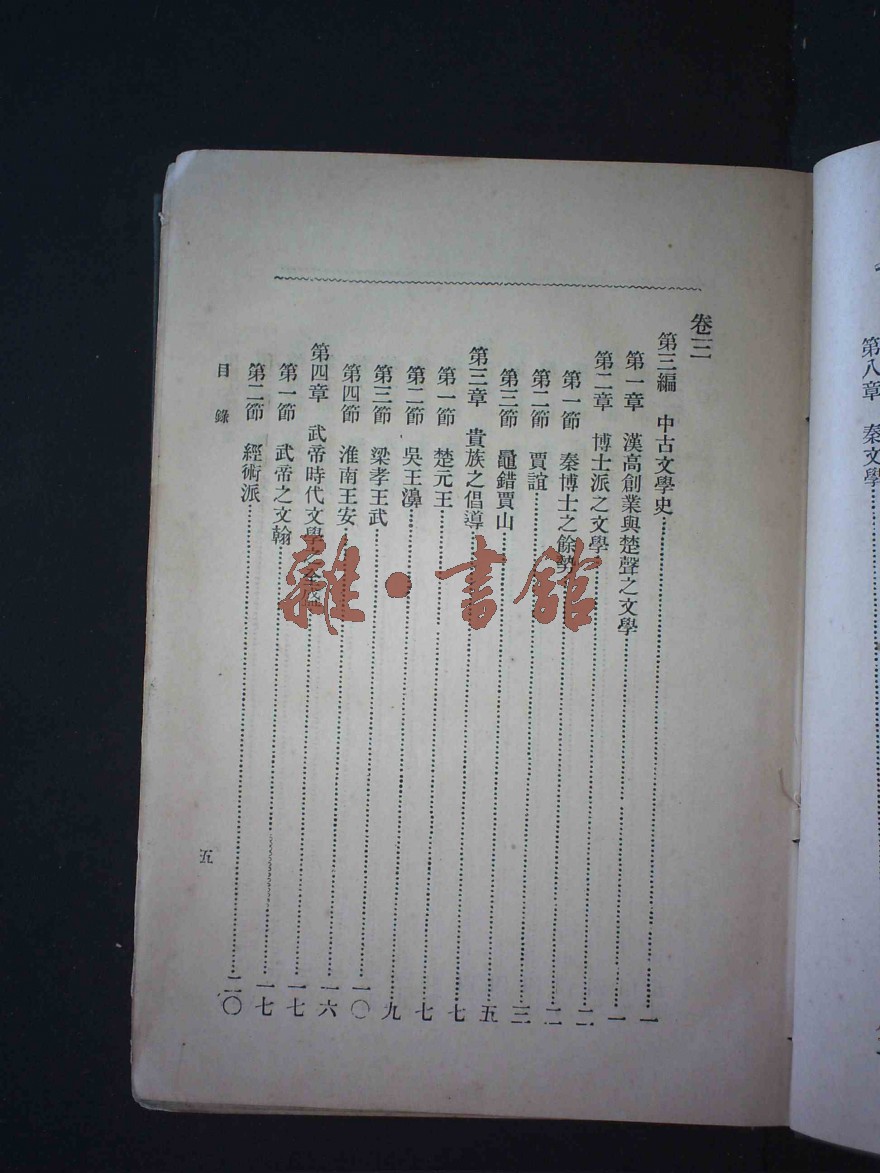 第八章 秦文學
卷三
第三編 中古文學史……一
第一章 漢高創業與楚聲之文學……一
第二章 博士派之文學……二
第一節 秦博士之餘勢……二
第二節 賈誼……三
第三節 鼂錯賈山……五
第三章 貴族之倡導……七
第一節 楚元王……七
第二節 吳王濞……九
第三節 梁孝王武……一〇
第四節 淮南王安……一六
第四章 武帝時代文學之全盛……一七
第一節 武帝之文翰……一七
第二節 經術派……二〇
目錄 五
雜·書館